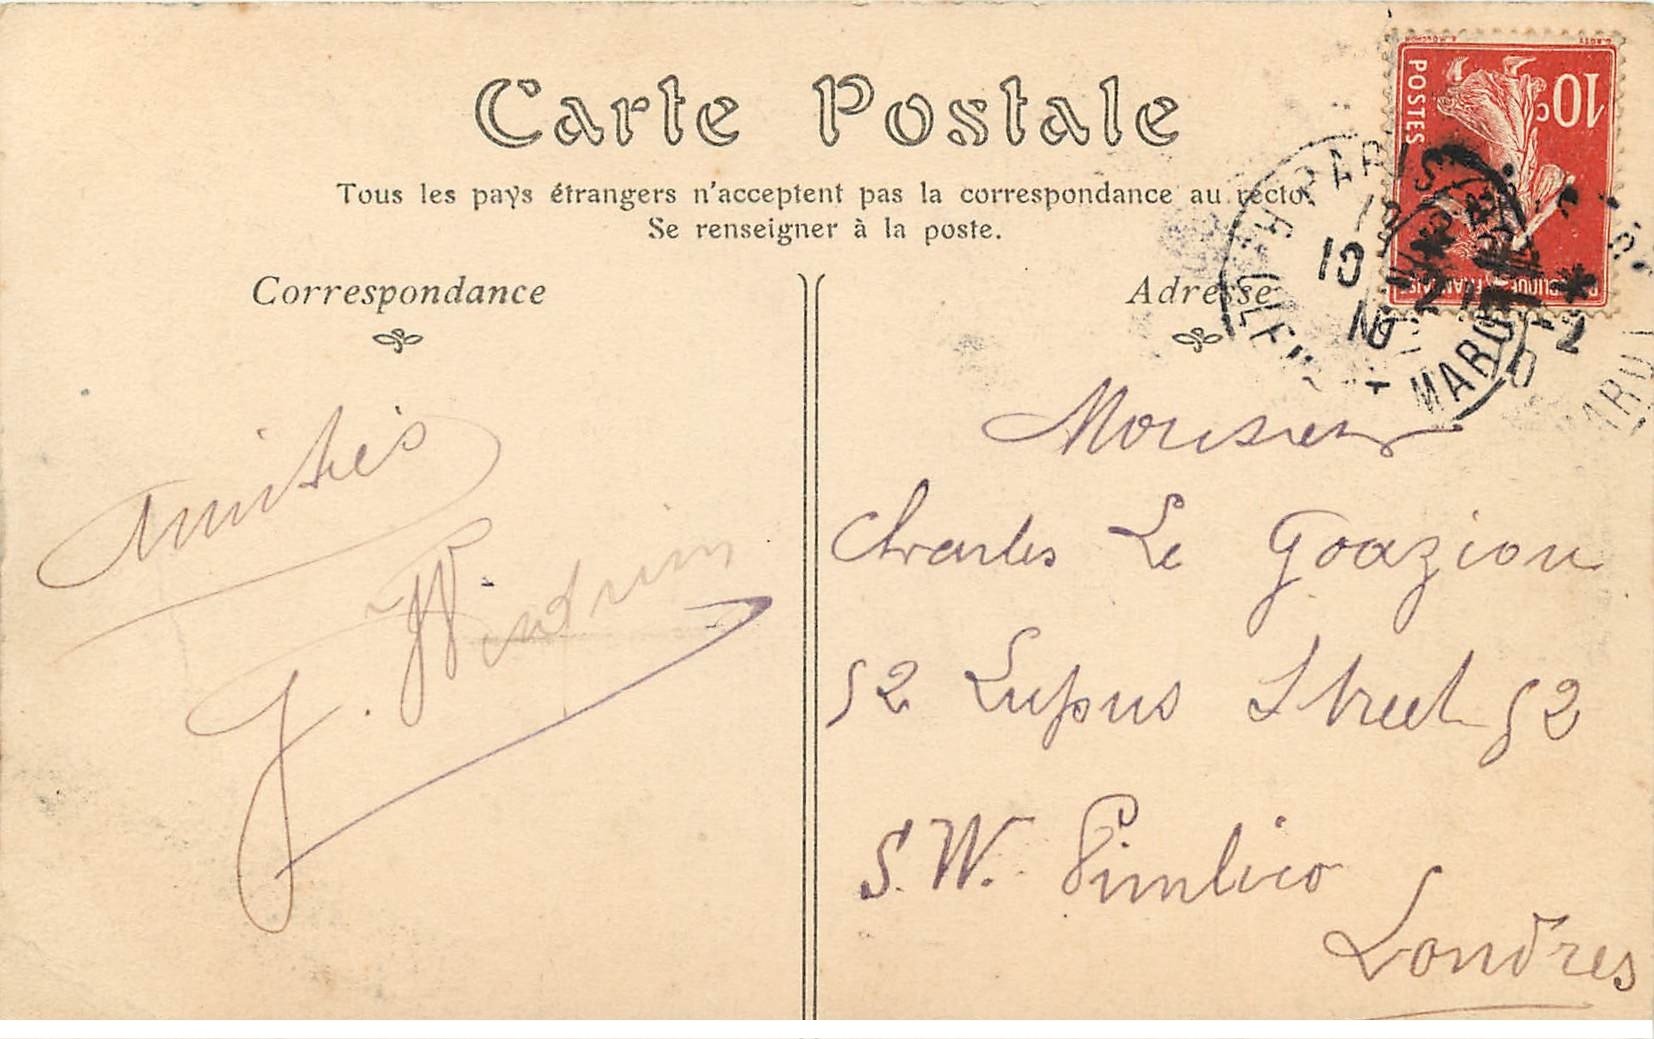 Carte Postale
Tous les pays étrangers n'acceptent pas la correspondance au recto.
Se renseigner à la poste.
Correspondance
Adresse
10c
POSTES
PARIS
Amitiés
J. Windrim
Monsieur
Charles Le Goazion
52 Lupus Street 52
S. W. Pimlico
Londres